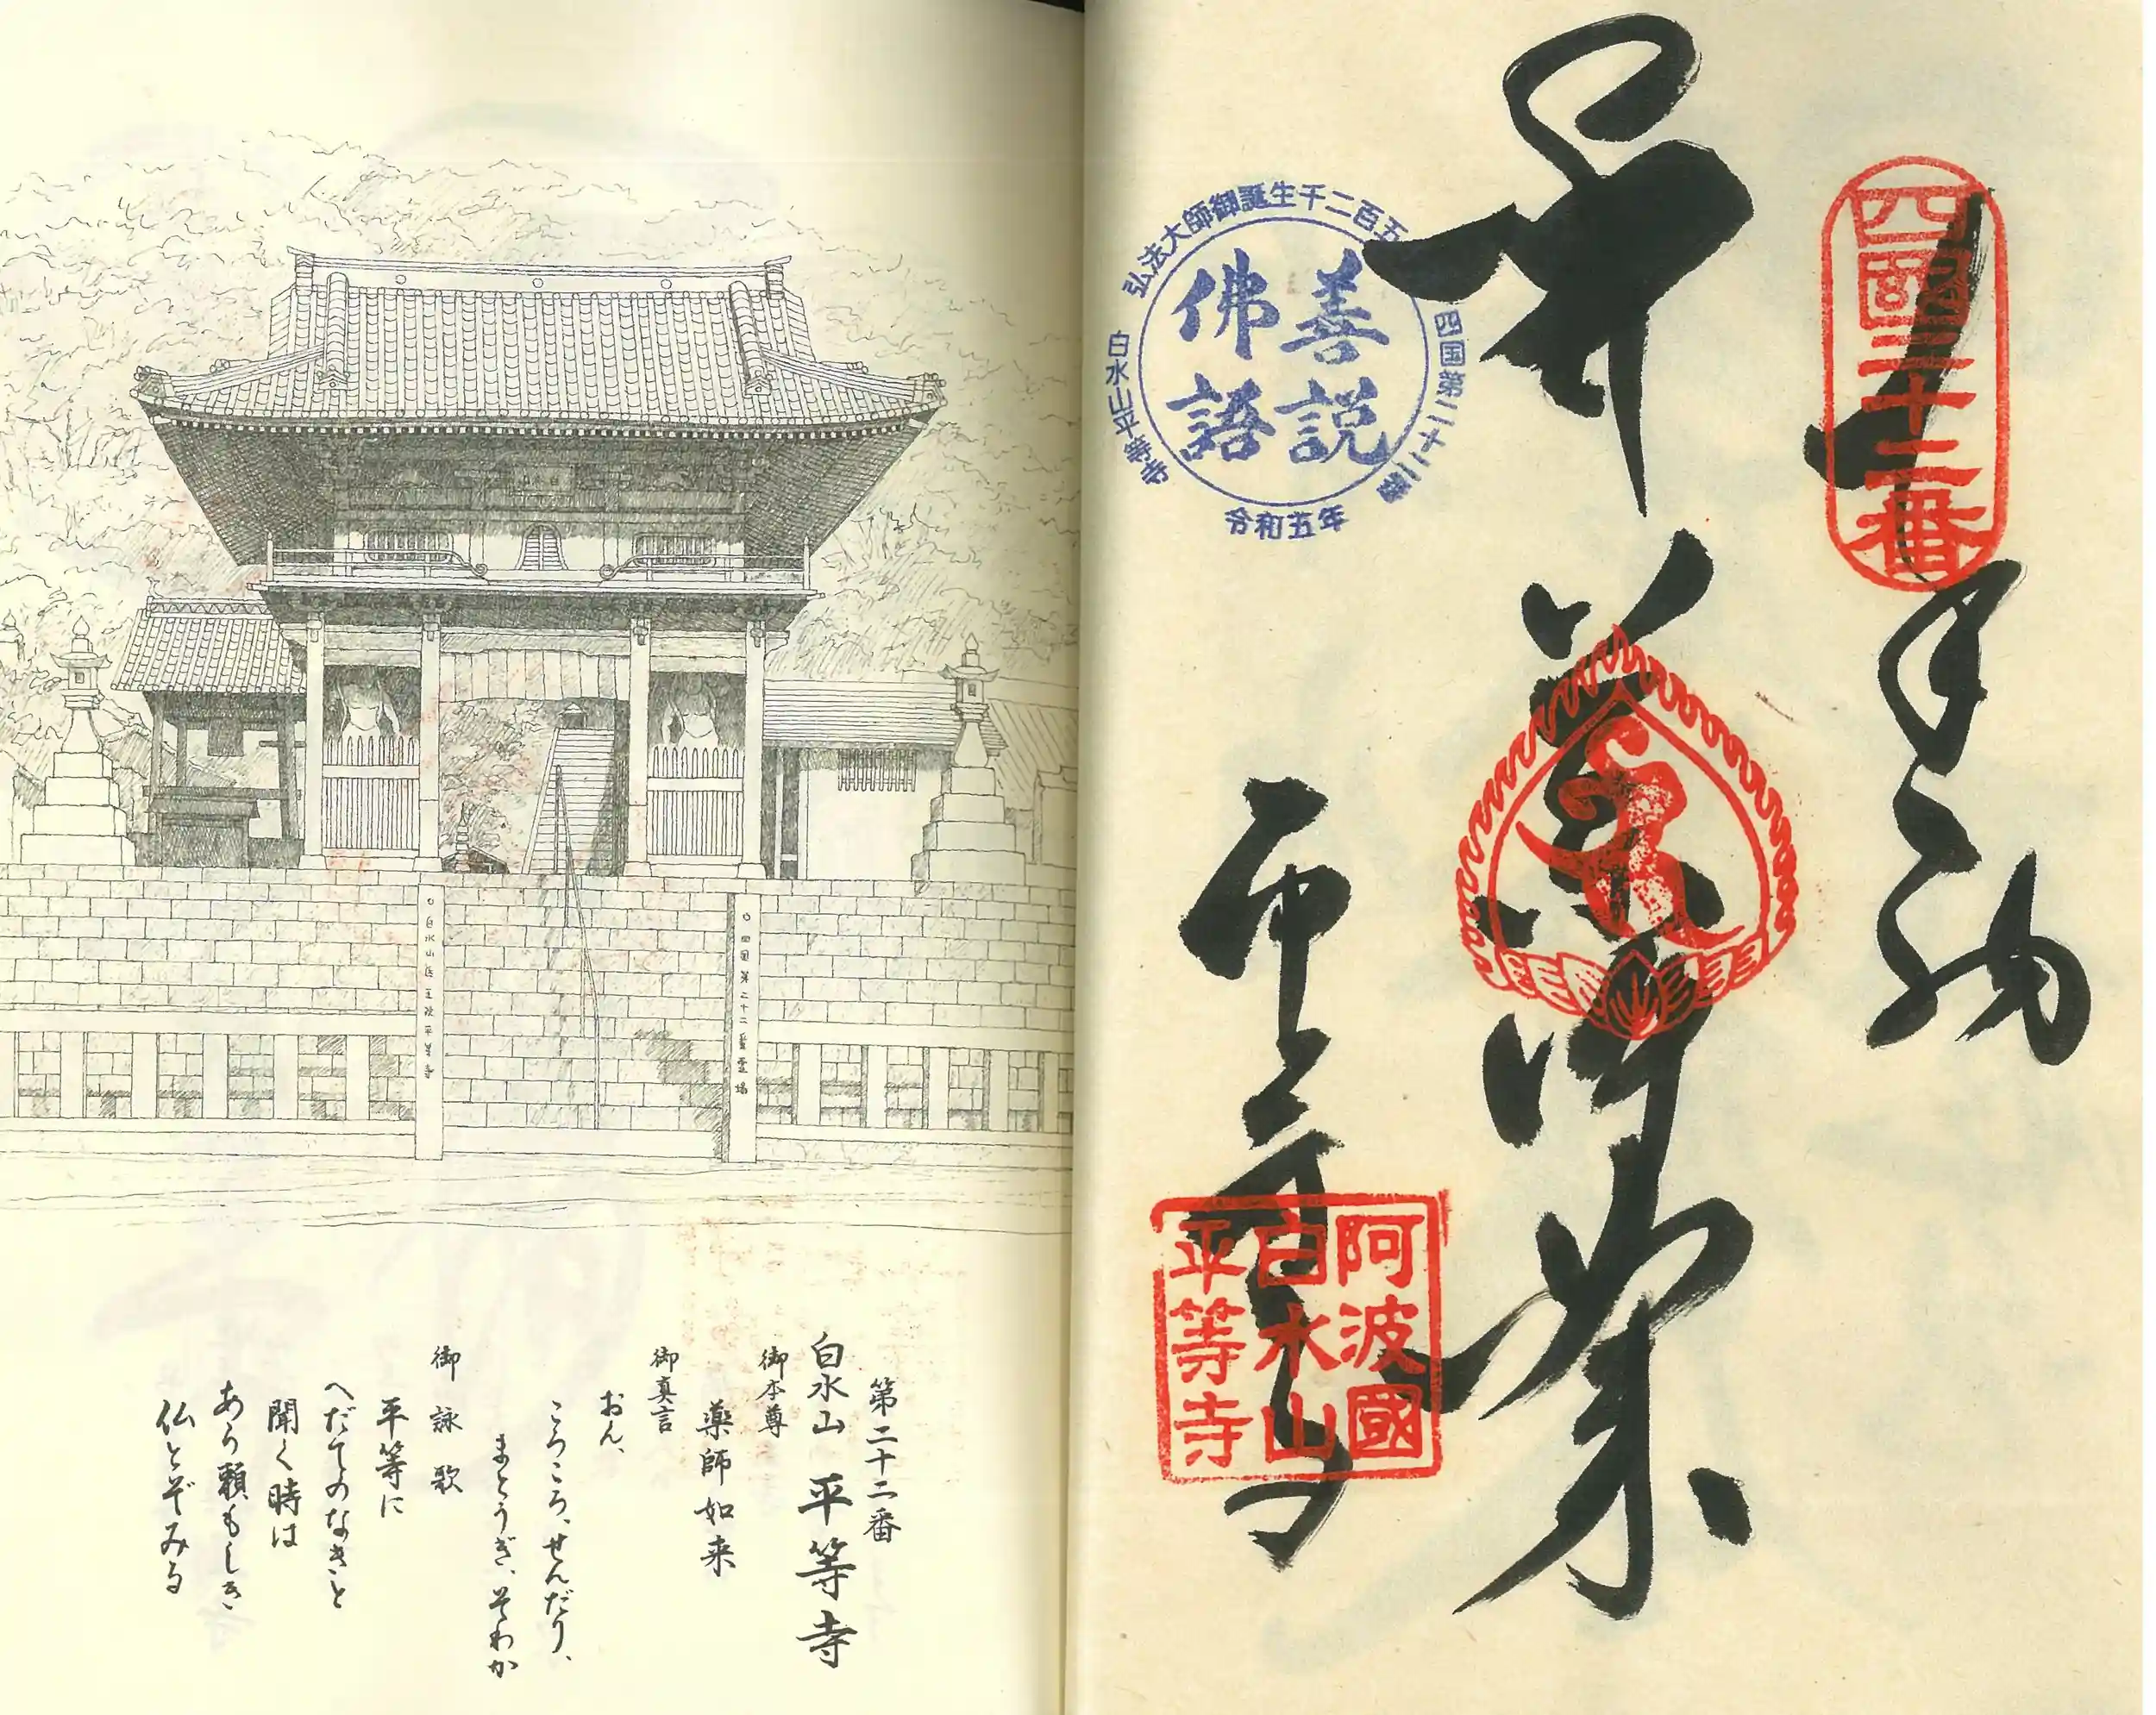 四國二十二番
奉納
薬師如来
平等寺
弘法大師御誕生千二百五
四国第二十二番
善説
佛語
白水山平等寺
令和五年
阿波國
白水山
平等寺
四国第二十二番霊場
第二十二番
白水山 平等寺
御本尊
薬師如来
御真言
おん、
ころころ、せんだり、
まとうぎ、そわか
御詠歌
平等に
へだてのなきと
聞く時は
あら頼もしき
仏とぞみる